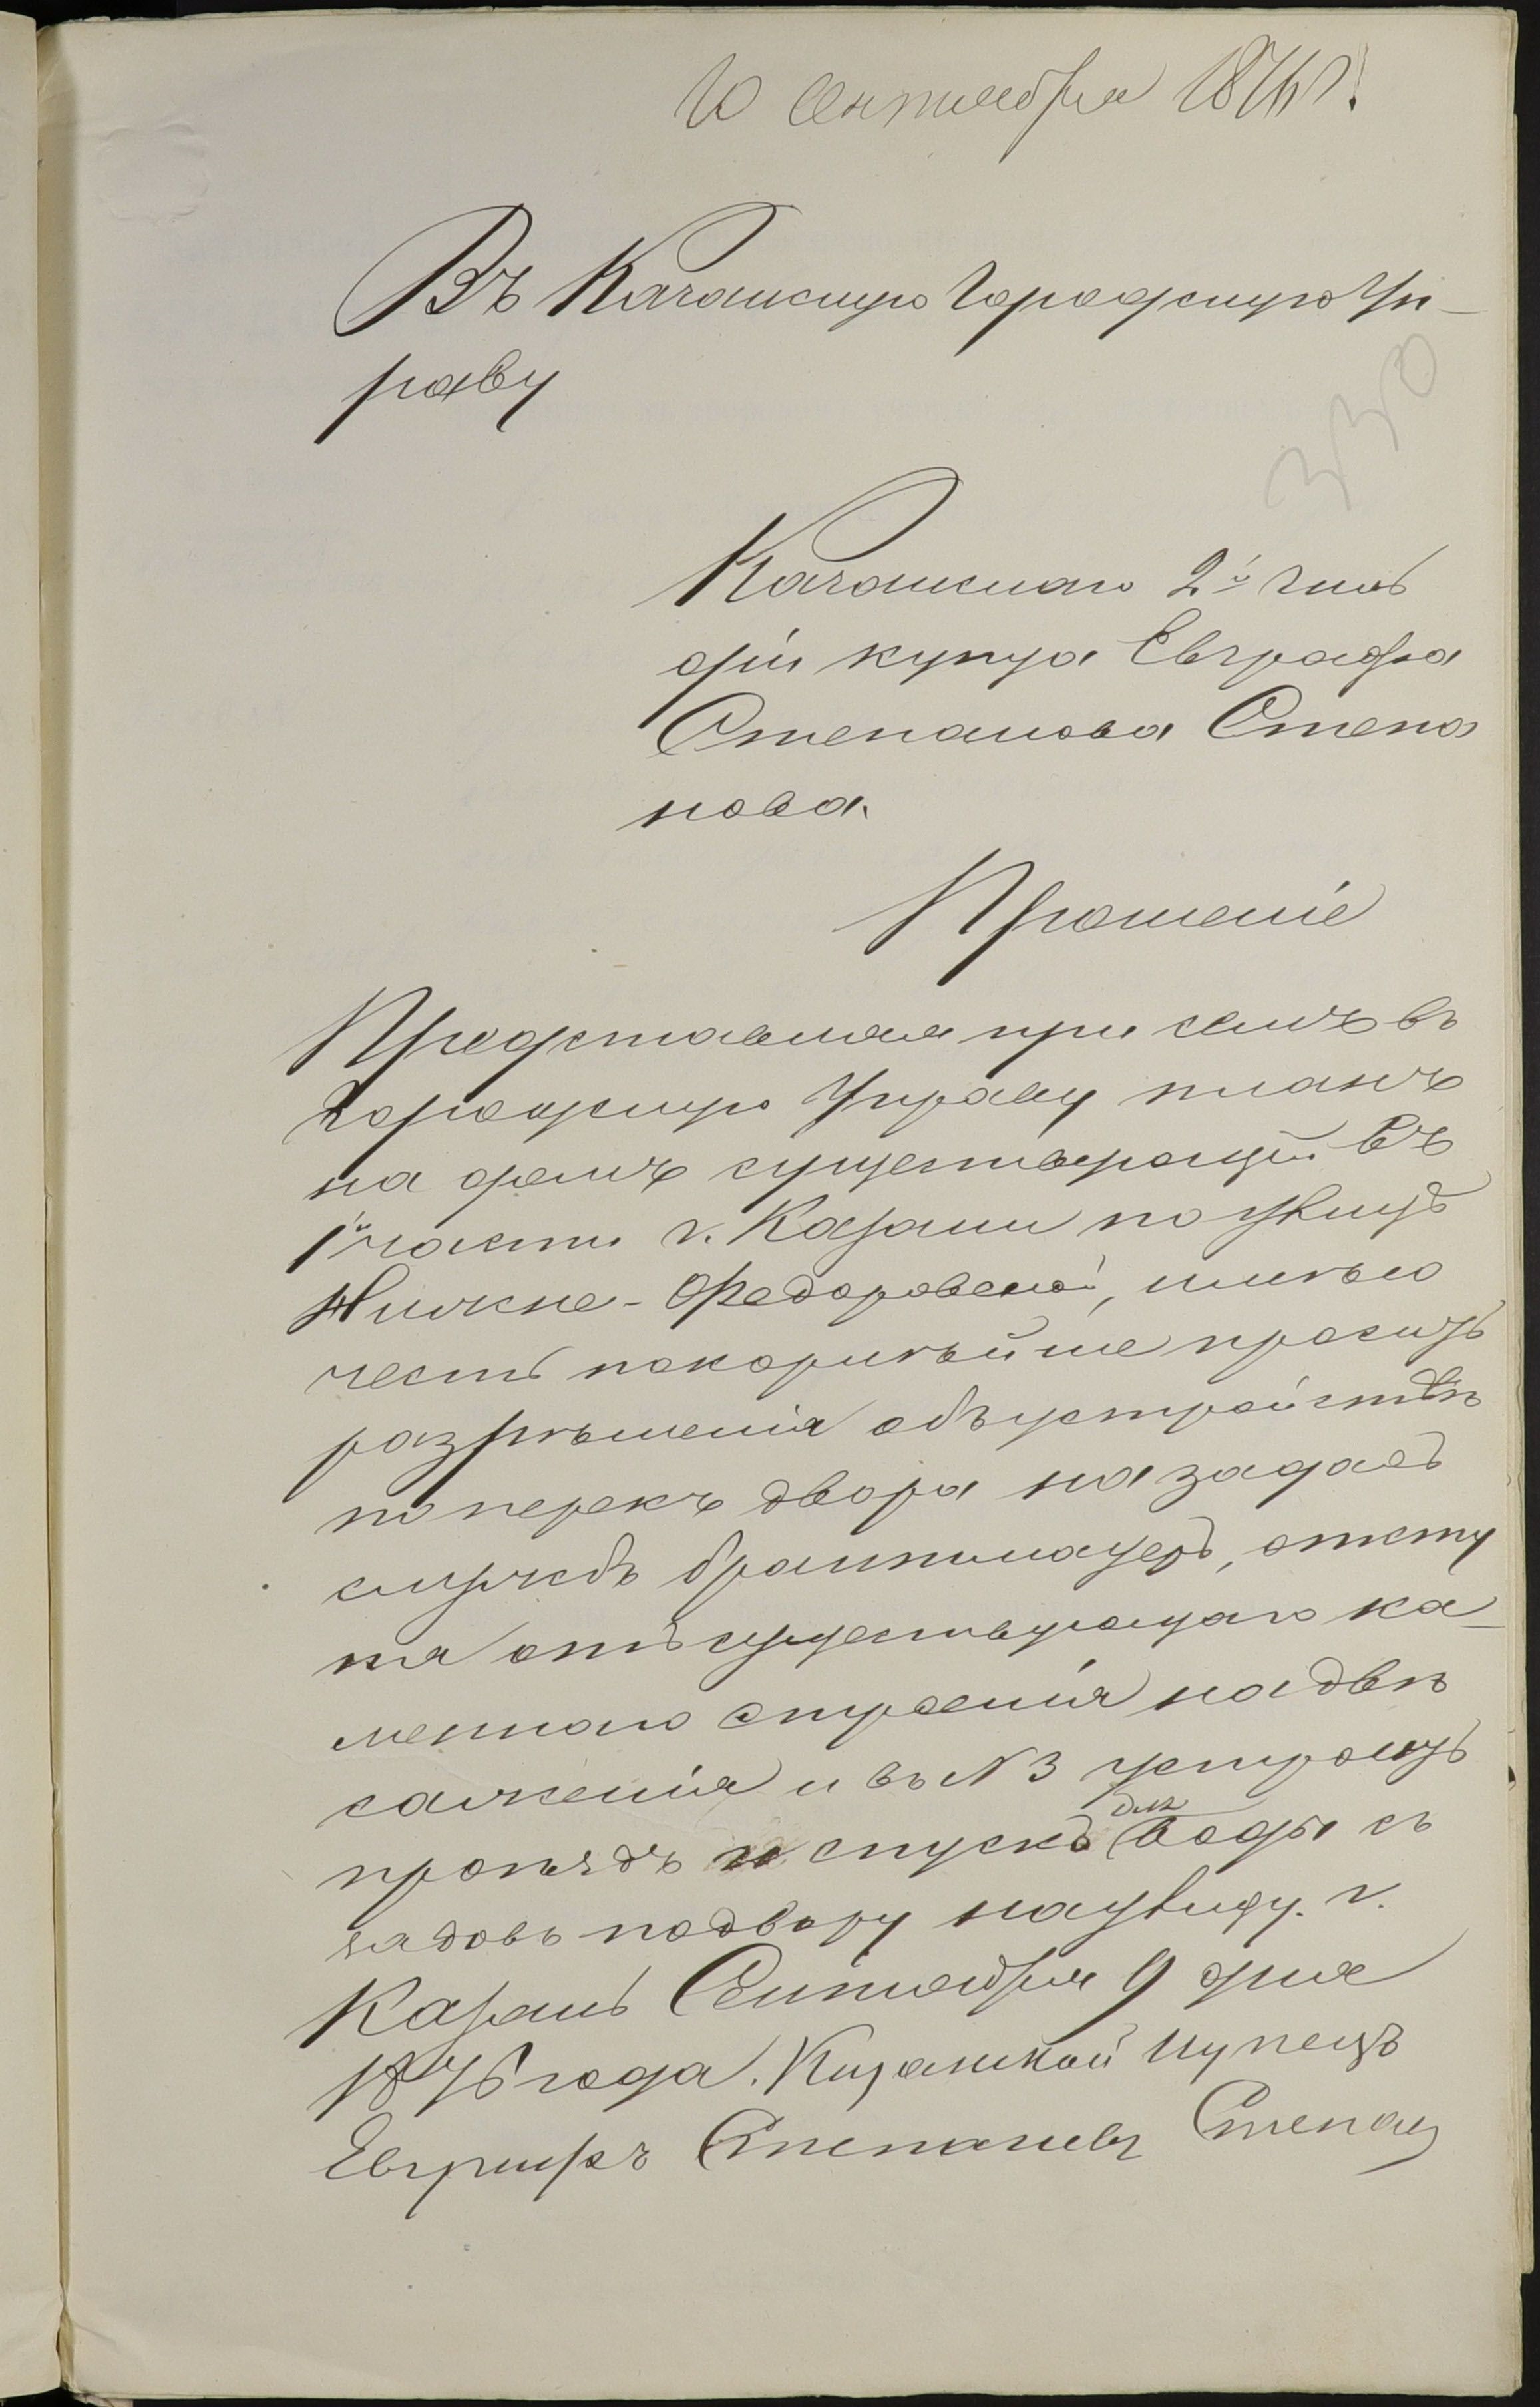 10 Сентября 1876 г.
Въ Казанскую Городскую Уп-
раву
330
Казанскаго 2й гиль
діи купца Евграфа
Степанова Степа
нова.
Прошеніе
Представляя при семъ въ
Городскую Управу планъ
на домъ существующій въ
1й части г. Казани по улицѣ
Нижне-Федоровской, имѣю
честь покорнѣйше просить
разрѣшенія объ устройствѣ
поперекъ двора на задахъ
службъ брантмауеръ, отсту
пя отъ существующаго ка-
меннаго строенія на двѣ
сажени и въ № 3 устроить
проѣздъ и спускъ для воды съ
задовъ по двору на улицу. г.
Казань Сентября 9 дня
1876 года. Казанской купецъ
Евграфъ Степановъ Степан